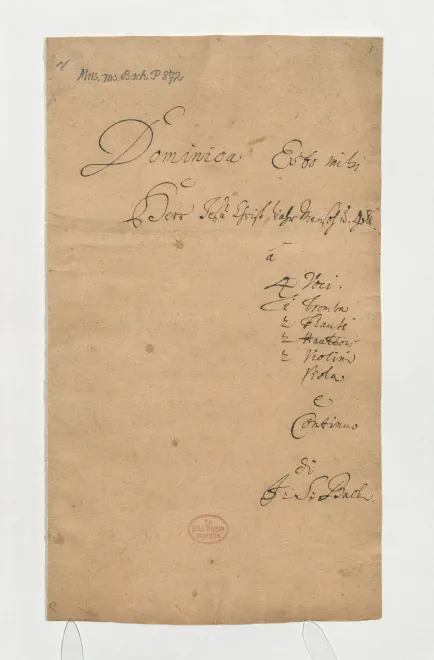 Mus. ms. Bach P 892
1
Dominica Esto mihi
Herr Jesu Christ, wahr Mensch u. Gott.
à
4 Voci.
Tromba
2 Flauti
2 Hautbois
2 Violini
Viola
e
Continuo
di
J. S. Bach.
Ex
Biblioth. Regia
Berolin.